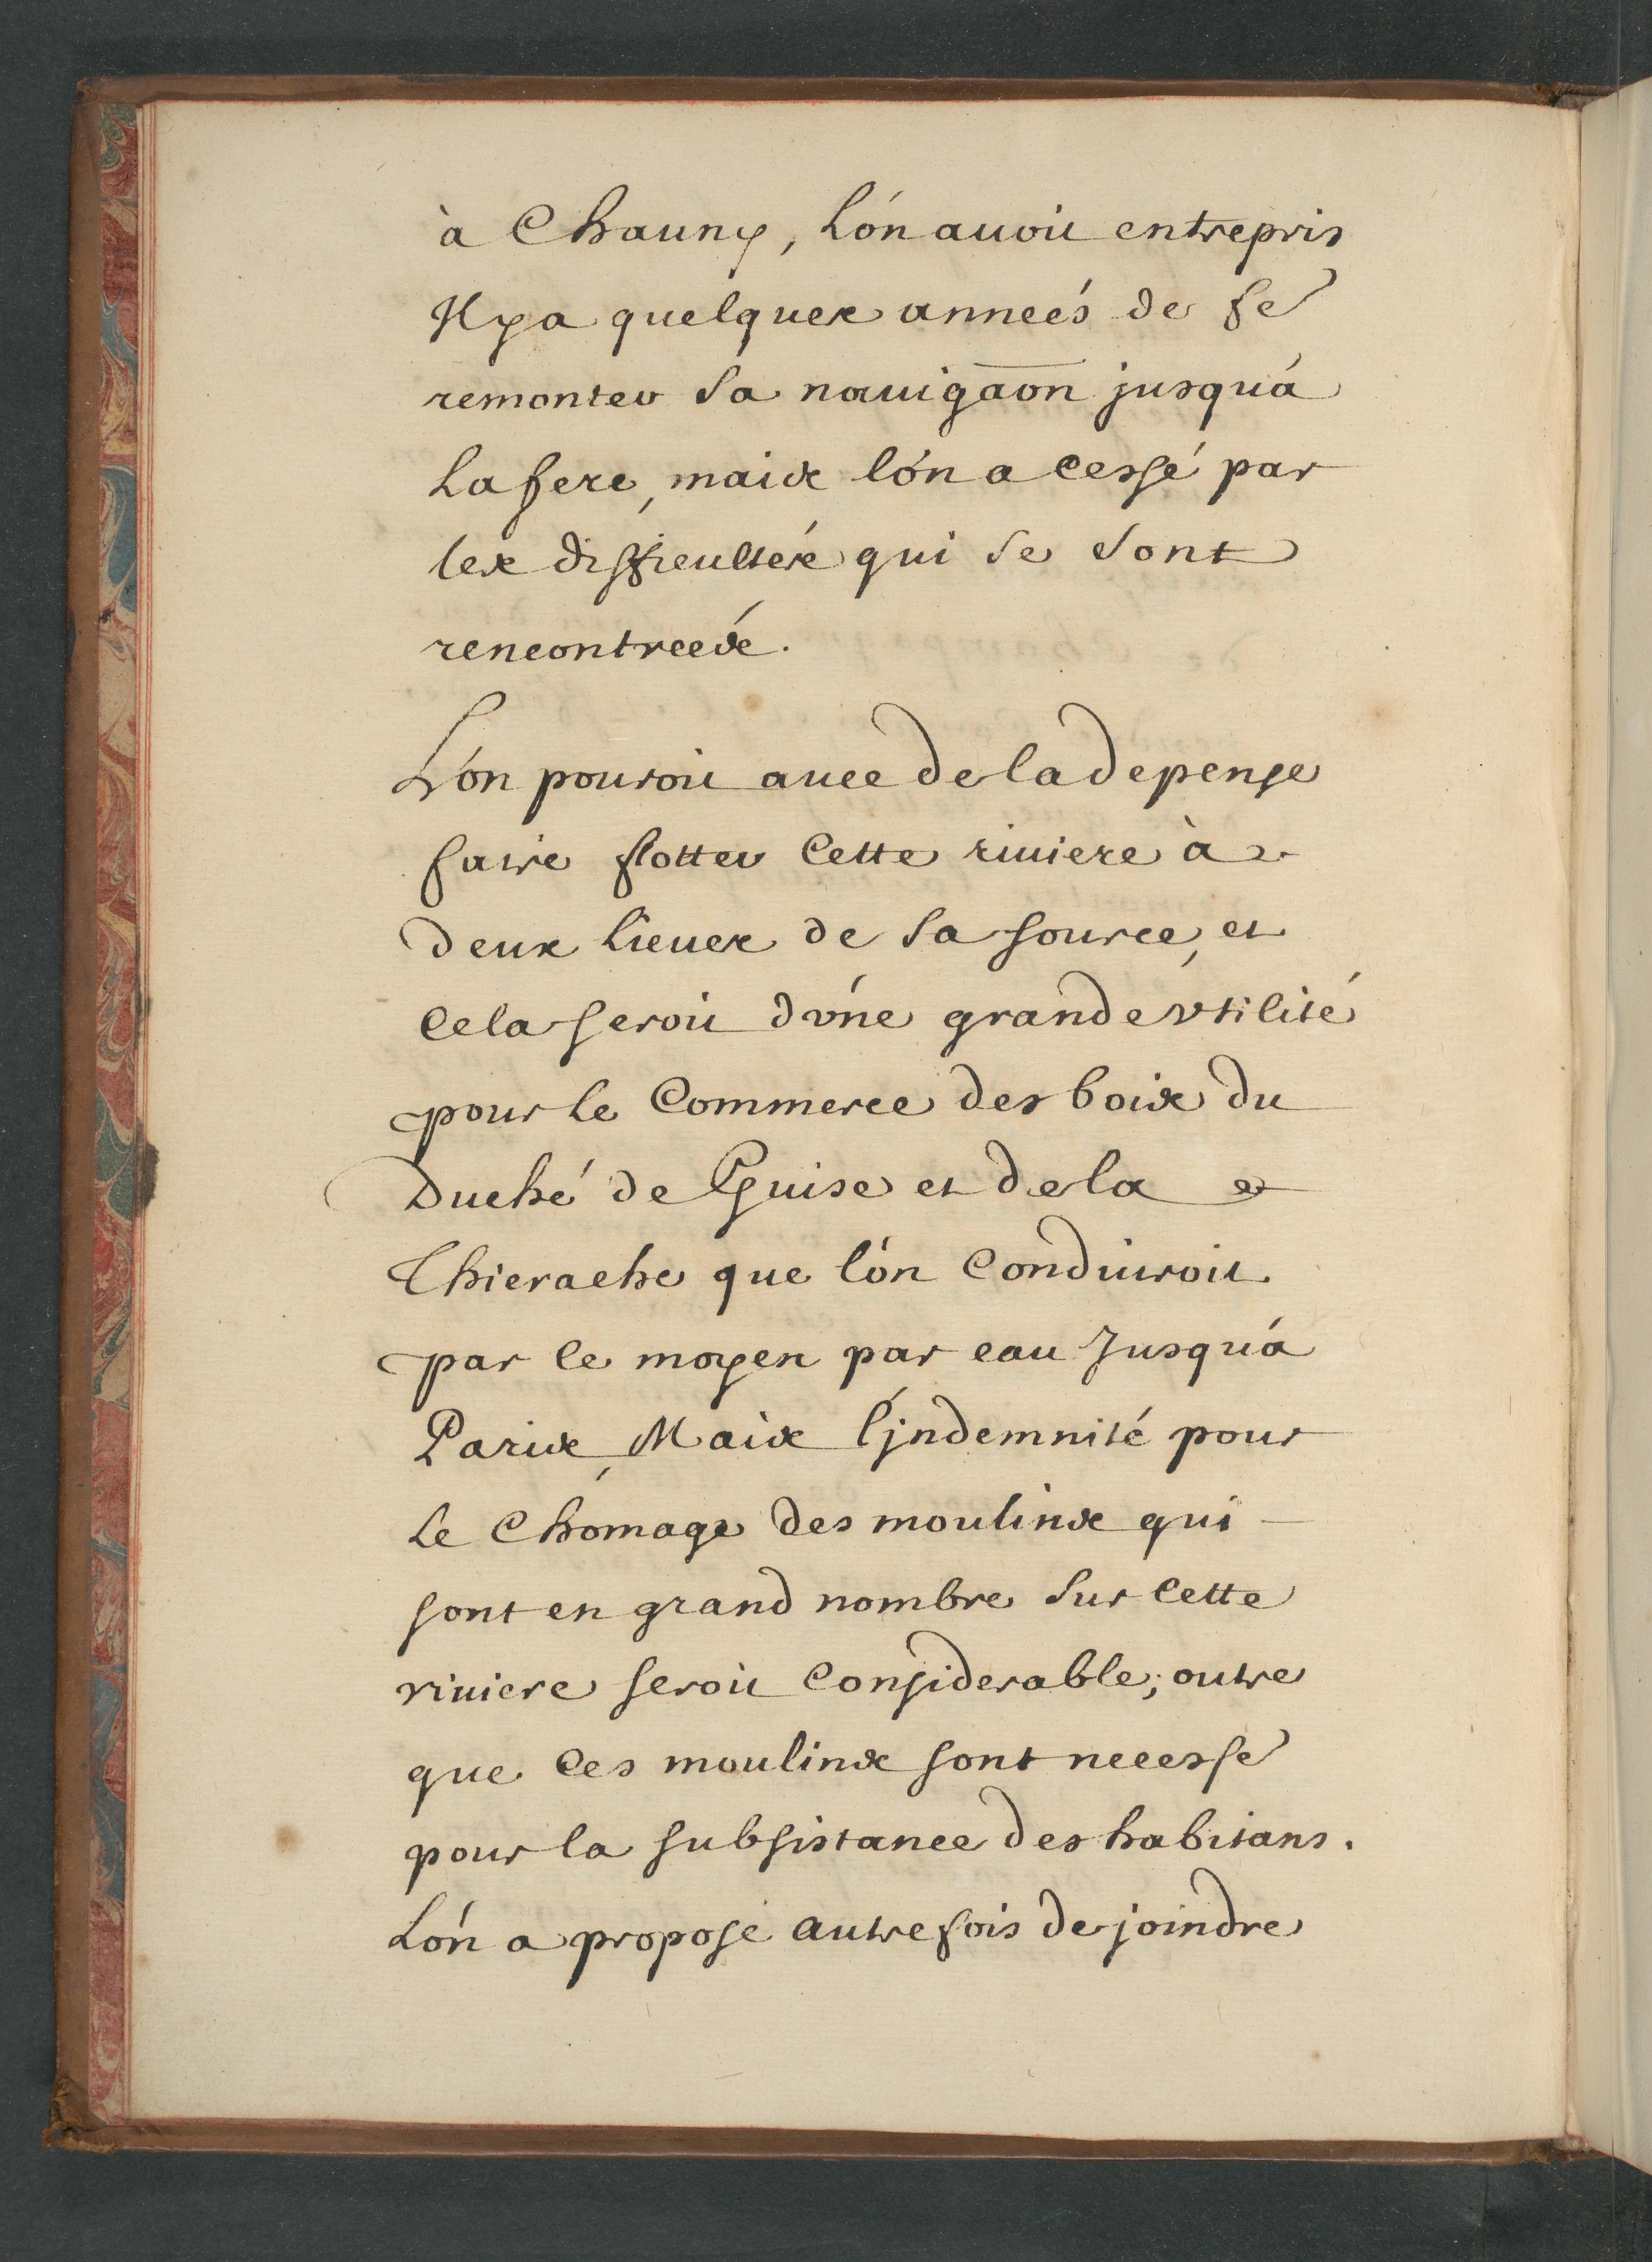 à Chauny, L'ón auoit entrepris
Il y a quelques anneés de fe
remonter sa nauigãon jusqu'á
La fere, mais l'ón a cessé par
les difficultés qui se sont
rencontreés.
L'on pouroit auec de la depense
faire flotter cette riuiere à
deux lieues de sa source, et
cela seroit d'vne grande vtilité
pour le commerce des bois du
Duché de Guise et de la
Thierache que l'ón conduiroit
par ce moyen par eau Jusqu'á
Paris, Mais l'jndemnité pour
Le chomage des moulins qui
sont en grand nombre sur cette
riuiere seroit considerable; outre
que ces moulins sont necesse
pour la subsistance des habitans.
L'ón a proposé autrefois de joindre